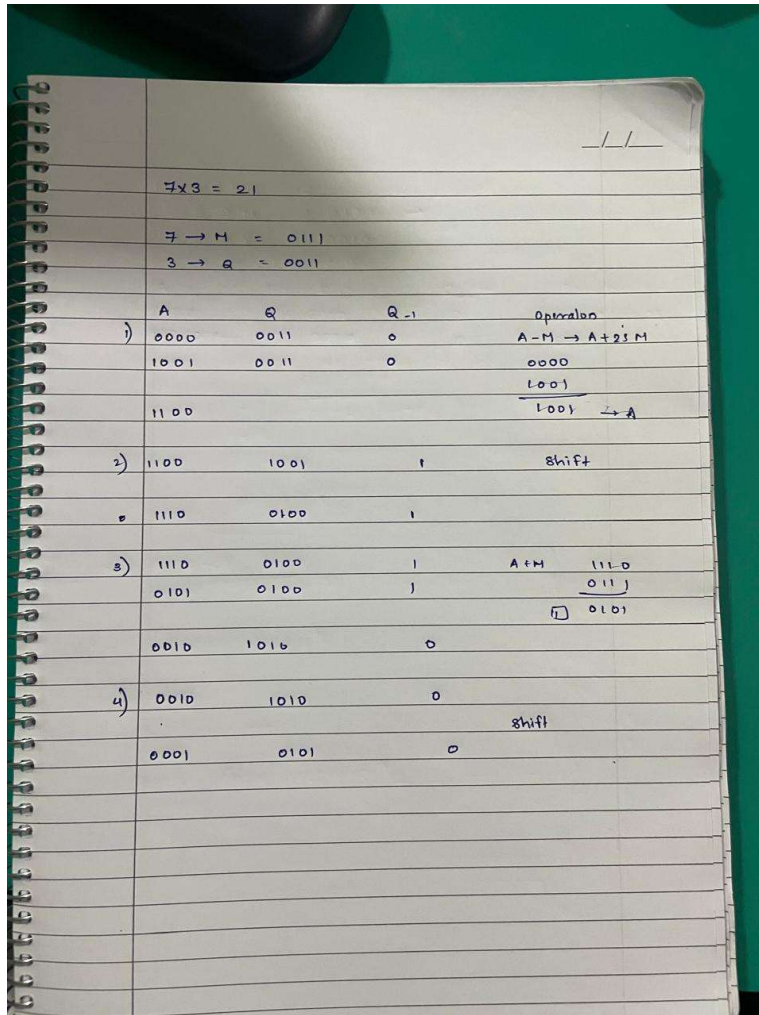 _/_/__
7x3 = 21
7 → M = 0111
3 → Q = 0011
A Q Q-1 Operaion
1) 0000 0011 0 A-M → A+2's M
1001 0011 0 0000
1001
1100 1001 → A
2) 1100 1001 1 Shift
1110 0100 1
3) 1110 0100 1 A+M 1110
0101 0100 1 0111
1 0101
0010 1010 0
4) 0010 1010 0
Shift
0001 0101 0